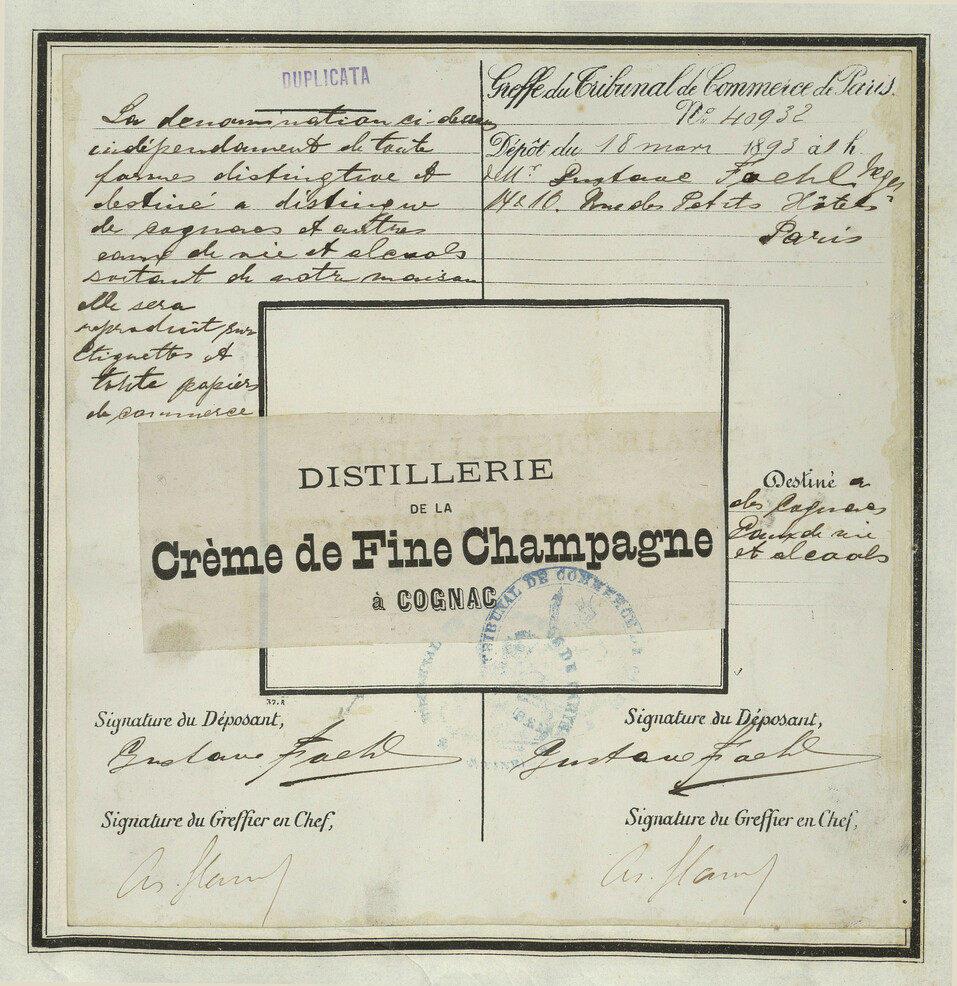 DUPLICATA
La denomination ci-dessus
indépendament de toute
formes distingtive et
destiné a distingue
de cognacs et autres
eaux de vie et alcools
sortant de notre maison
Elle sera
reproduit sur
étiquettes et
toute papiers
de commerce
Greffe du Tribunal de Commerce de Paris.
No 40932
Dépôt du 18 mars 1893 à 1 h.
de Mr Gustave Foehl
14 & 16. Rue des Petits Hôtels
Paris
DISTILLERIE
DE LA
Crème de Fine Champagne
à COGNAC
Destiné a
des Cognacs
Eaux de vie
et alcools
TRIBUNAL DE COMMERCE DE
37.A
Signature du Déposant,
Gustave Foehl
Signature du Greffier en Chef,
Signature du Déposant,
Gustave Foehl
Signature du Greffier en Chef,